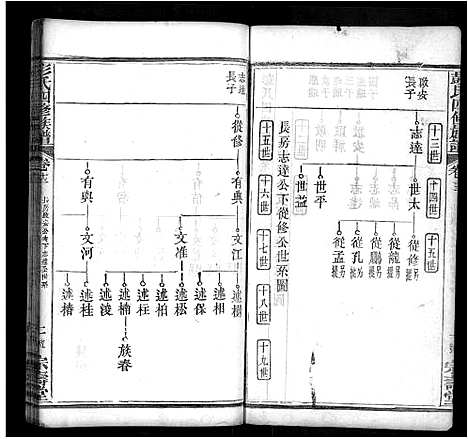 彭氏四修族譜
卷
十三世
十四世
十五世
啟安
長子
志達
世太
世平
世益
從修
從龍 另
從鵬 另
從孔 另
從孟 另
長房志達公下從修公世系圖
十五世
十六世
十七世
十八世
十九世
志達
長子
從修
有典
有與
文江
文准
文河
述相
述保
述松
述柏
述枉
述浚
述桂
述椿
族春
彭氏四修族譜
卷
宗壽堂